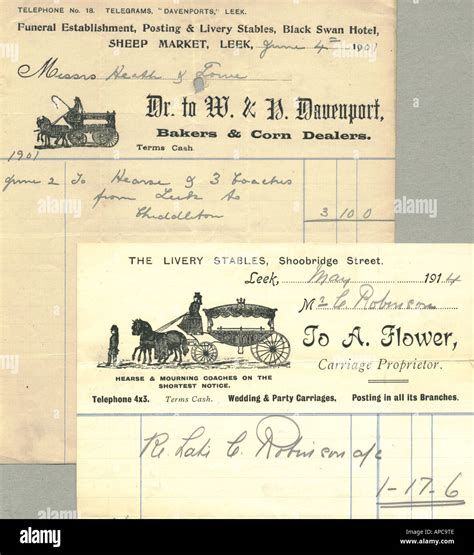 TELEPHONE No. 18. TELEGRAMS, "DAVENPORTS," LEEK.
Funeral Establishment, Posting & Livery Stables, Black Swan Hotel,
SHEEP MARKET, LEEK, June 4th 1901
Messrs Heath &
Dr. to W. & H. Davenport,
Bakers & Corn Dealers.
Terms Cash.
1901
June 2 To Hearse & 3 Coaches
from Leek to
Cheddleton 3 10 0
THE LIVERY STABLES, Shoobridge Street.
Leek, May 1914
Mr C Robinson
To A. Flower,
Carriage Proprietor.
HEARSE & MOURNING COACHES ON THE
SHORTEST NOTICE.
Telephone 4x3. Terms Cash. Wedding & Party Carriages. Posting in all its Branches.
Re Late C. Robinson a/c
1-17-6
alamy
alamy
alamy
a
a
a
alamy
Image ID: APC9TE
www.alamy.com